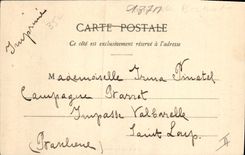 CARTE POSTALE
Ce côté est exclusivement réservé à l'adresse
Imprimé
Mademoiselle Irma
Campagne
Impasse Valbarelle
Saint Loup.
(Banlieue)